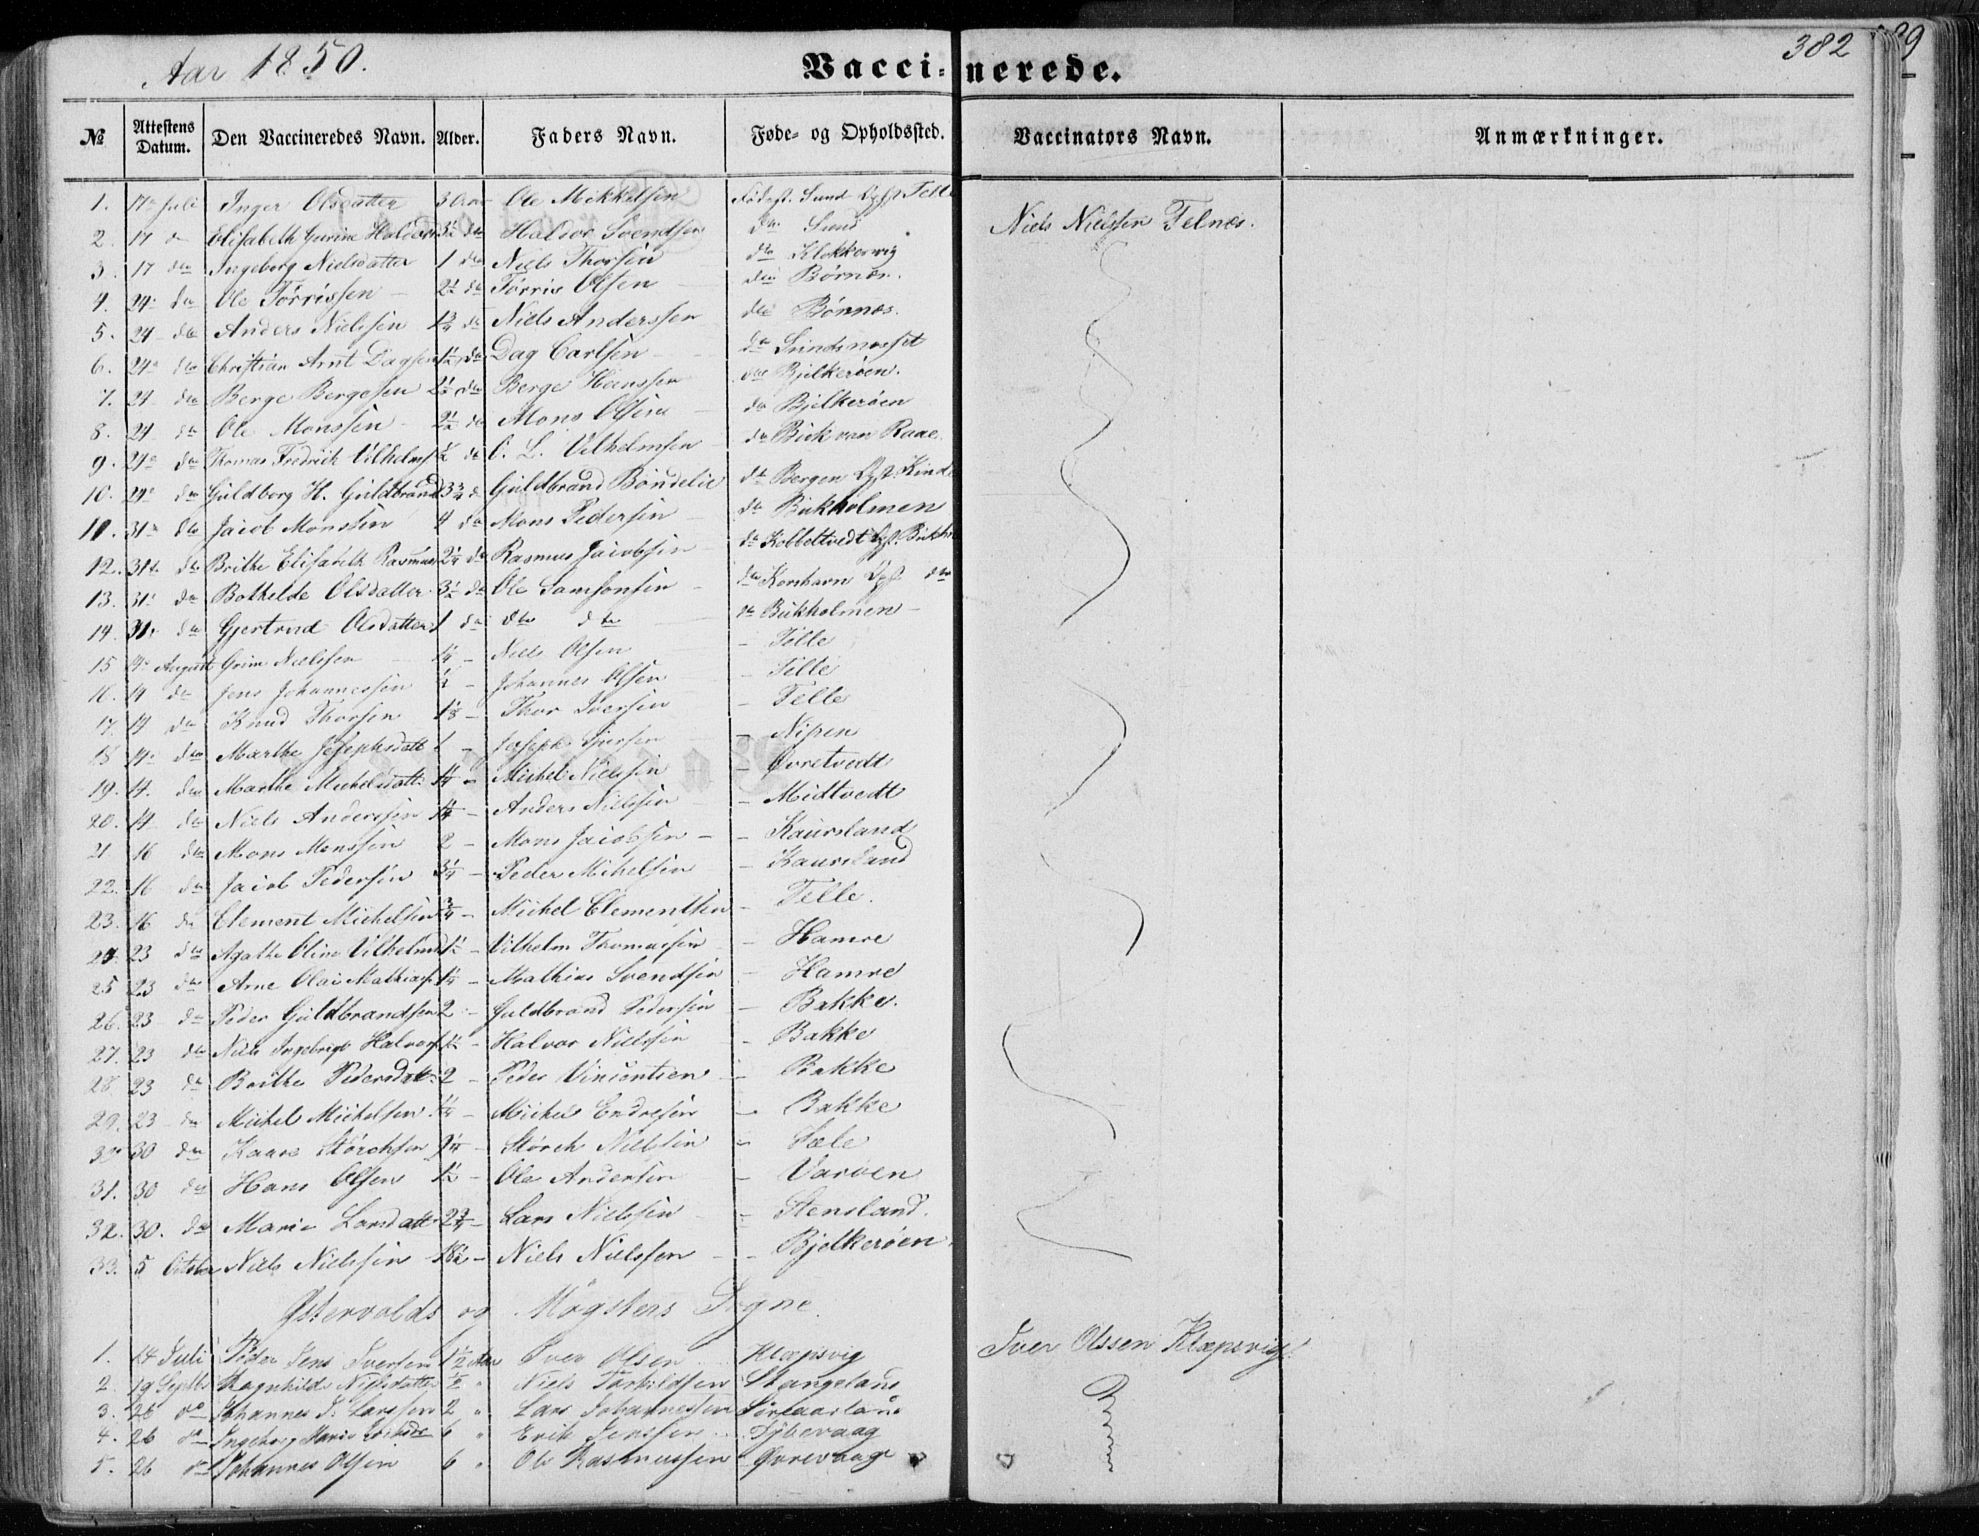 Aar 1850.
Vaccinerede.
382
No Attestens Datum. Den Vaccineredes Navn. Alder. Faders Navn. Føde- og Opholdssted. Vaccinators Navn. Anmærkninger.
1. 17 Juli Inger Olsdatter 3 Ole Mikkelsen Fødest. Sund Opst. Telle Niels Nielssen Telnes.
2. 17 Elisabeth Gurine Halvor Svendsen do Sund
3. 17 do Ingeborg Nielsdatter 1 do Niels Thorsen do Klokkervig
4. 24 do Ole Tørrissen 2½ do Tørris Olsen do Børnæs.
5. 24 do Anders Nielssen 1¾ do Niels Anderssen do Bønnæs.
6. 24 do Christian Arnt Dagsen 1½ do Dag Carlsen do
7. 24 do Berge Bergesen 2½ do Berge Hanssen do Bjelkerøen.
8. 24 do Ole Monssen 2½ do Mons Olsen do Bjelkerøen
9. 24 do Thomas Fredrick Vilhelms ½ do C. L. Vilhelmsen do
10. 24 do Guldborg H. Guldbrand 3¾ d Guldbrand Bøndelie do Bergen Opst.
11. 31 do Jacob Monsen 4 do Mons Pedersen do Bukholmen
12. 31 do Brithe Elisabeth Rasmus 2¼ do Rasmus Jacobsen do Kobbeltvedt Opst. Bukh
13. 31 do Bothelde Olsdatter 3½ do Ole Samsonsen do Korshavn Opst do
14. 31 do Gjertrud Olsdatter 1 do do do do Bukholmen
15 14 August Grim Nielssen 1¼ - Niels Olsen - Telle
16. 14 do Jens Johannessen - Johannes Olsen - Telle
17. 14 do Knud Thorsen 1⅛ - Thor Iversen - Telle
18 14 do Marthe Josephsdatt 1 - Joseph - Nipen
19. 14. do Marthe Michelsdatt. 1¼ - Michel Nielssen - Øvretvedt
20. 14 do Niels Anderssen 1¼ - Anders Nielssen - Midtvedt
21 16 do Mons Monssen 2 - Mons Jacobsen - Kausland
22. 16 do Jacob Pedersen 3¼ - Peder Mikelsen - Kausland
23. 16 do Clement Michelsen ¾ - Michel Clementsen - Telle.
24. 23 do Agathe Oline Vilhelms 1½ - Vilhelm Thomassen - Hamre
25 23 do Arne Olai Mathias 1¼ - Mathias Svendsen - Hamre
26. 23 do Peder Guldbrandsen 2 - Guldbrand Pedersen - Bakke.
27. 23 do Niels Ingebrigt Halvors 1½ - Halvor Nielssen - Bakke
28. 23 do Brithe Pedersdatt. 2 - Peder Vincentsen - Bakke
29. 23 do Michel Michelsen 1¼ - Michel Endresen - Bakke
30 30 do Kaare Størchsen 9¼ - Størch Nielssen - Sæle
31. 30 do Hans Olsen 1½ - Ole Andersen - Varøen
32. 30. do Marie Larsdatter 2¾ - Lars Nielssen - Stensland.
33. 5 October Niels Nielssen 18½ - Niels Nielssen - Bjelkerøen.
Østervolds og Møgsters Sogne.
1. 24 Juli Peder Jens Iversen 1½ Aar Iver Olsen Klæpsvig Iver Olssen Klæpsvig.
2. 19 Septbr Ragnhilde Nielsdatter ½ " Niels Torkildsen Stangeland
3. 26 do Johannes J. Larssen 2 " Lars Johannessen
4. 26 do Ingeborg Marie 6 " Erik Jenssen
5. 26 do Johannes Olsen 6 " Ole Rasmussen Øvrevaage